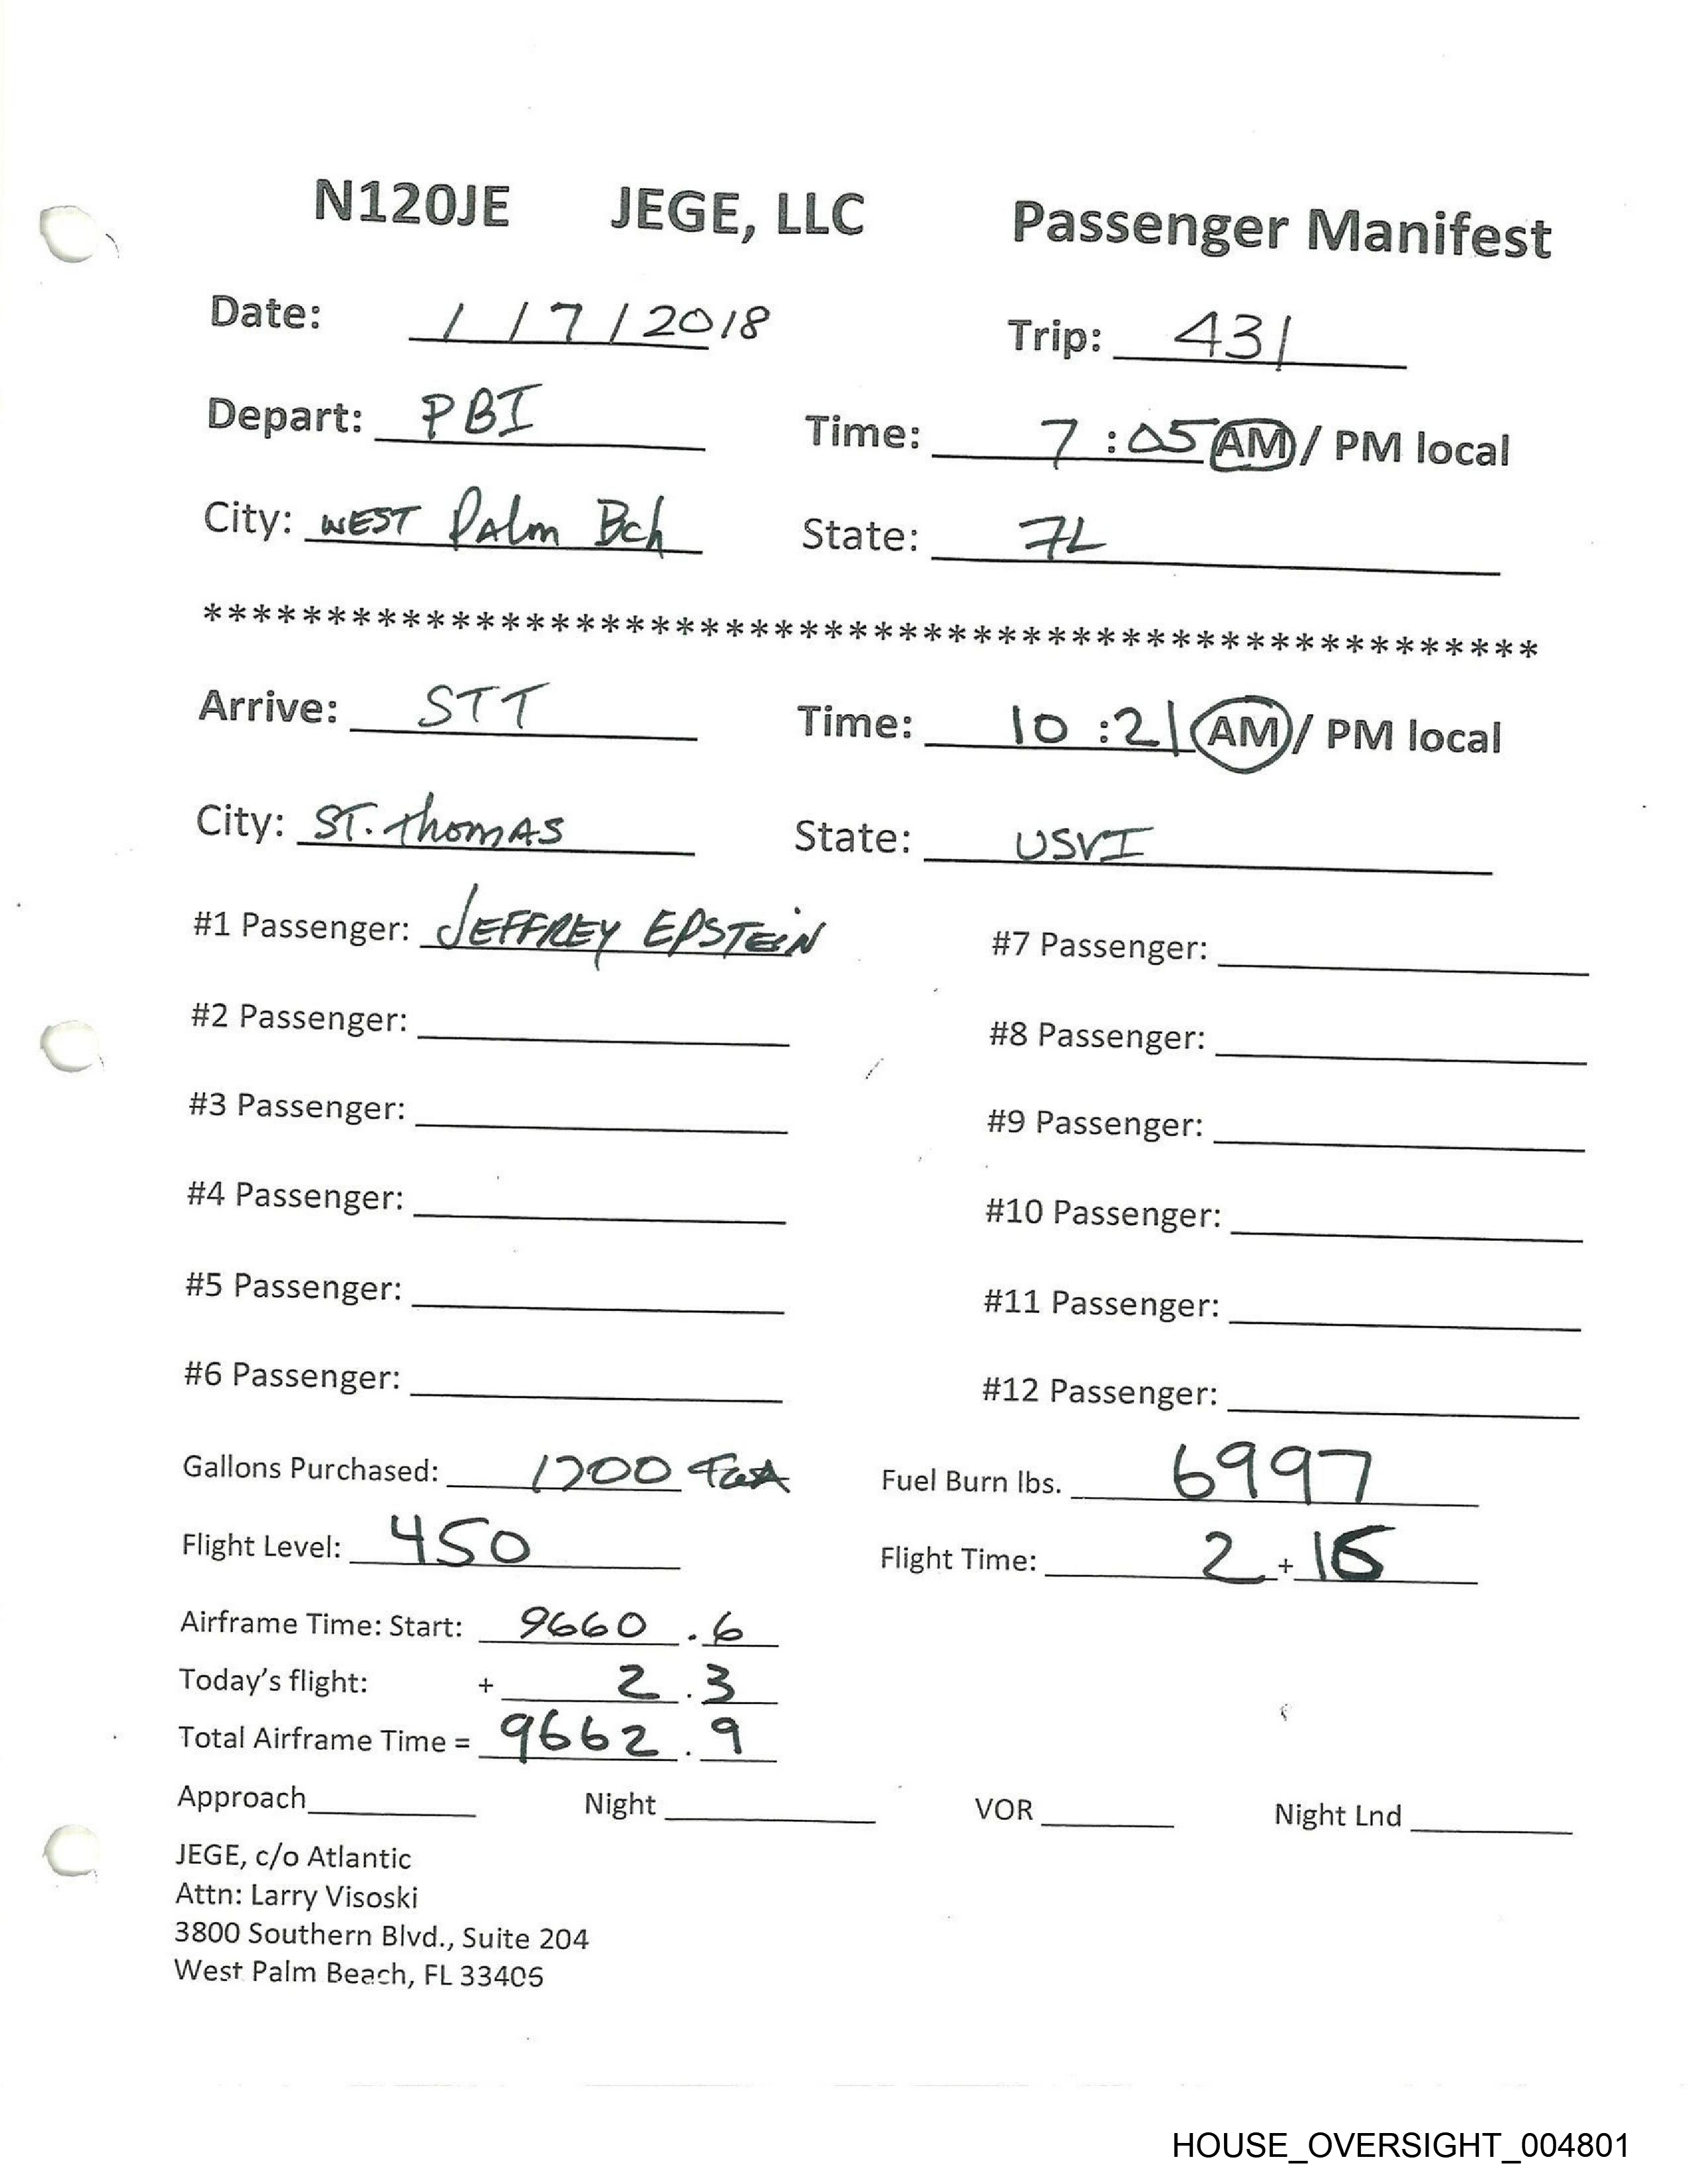 N120JE JEGE, LLC Passenger Manifest
Date: 1 / 7 / 2018 Trip: 431
Depart: PBI Time: 7 : 05 AM / PM local
City: WEST Palm Bch State: FL
******************************************************
Arrive: STT Time: 10 : 21 AM / PM local
City: ST. Thomas State: USVI
#1 Passenger: JEFFREY EPSTEIN #7 Passenger:
#2 Passenger: #8 Passenger:
#3 Passenger: #9 Passenger:
#4 Passenger: #10 Passenger:
#5 Passenger: #11 Passenger:
#6 Passenger: #12 Passenger:
Gallons Purchased: Fuel Burn lbs. 6997
Flight Level: 450 Flight Time: 2 + 16
Airframe Time: Start: 9660 . 6
Today's flight: + 2 . 3
Total Airframe Time = 9662 . 9
Approach Night VOR Night Lnd
JEGE, c/o Atlantic
Attn: Larry Visoski
3800 Southern Blvd., Suite 204
West Palm Beach, FL 33405
HOUSE_OVERSIGHT_004801